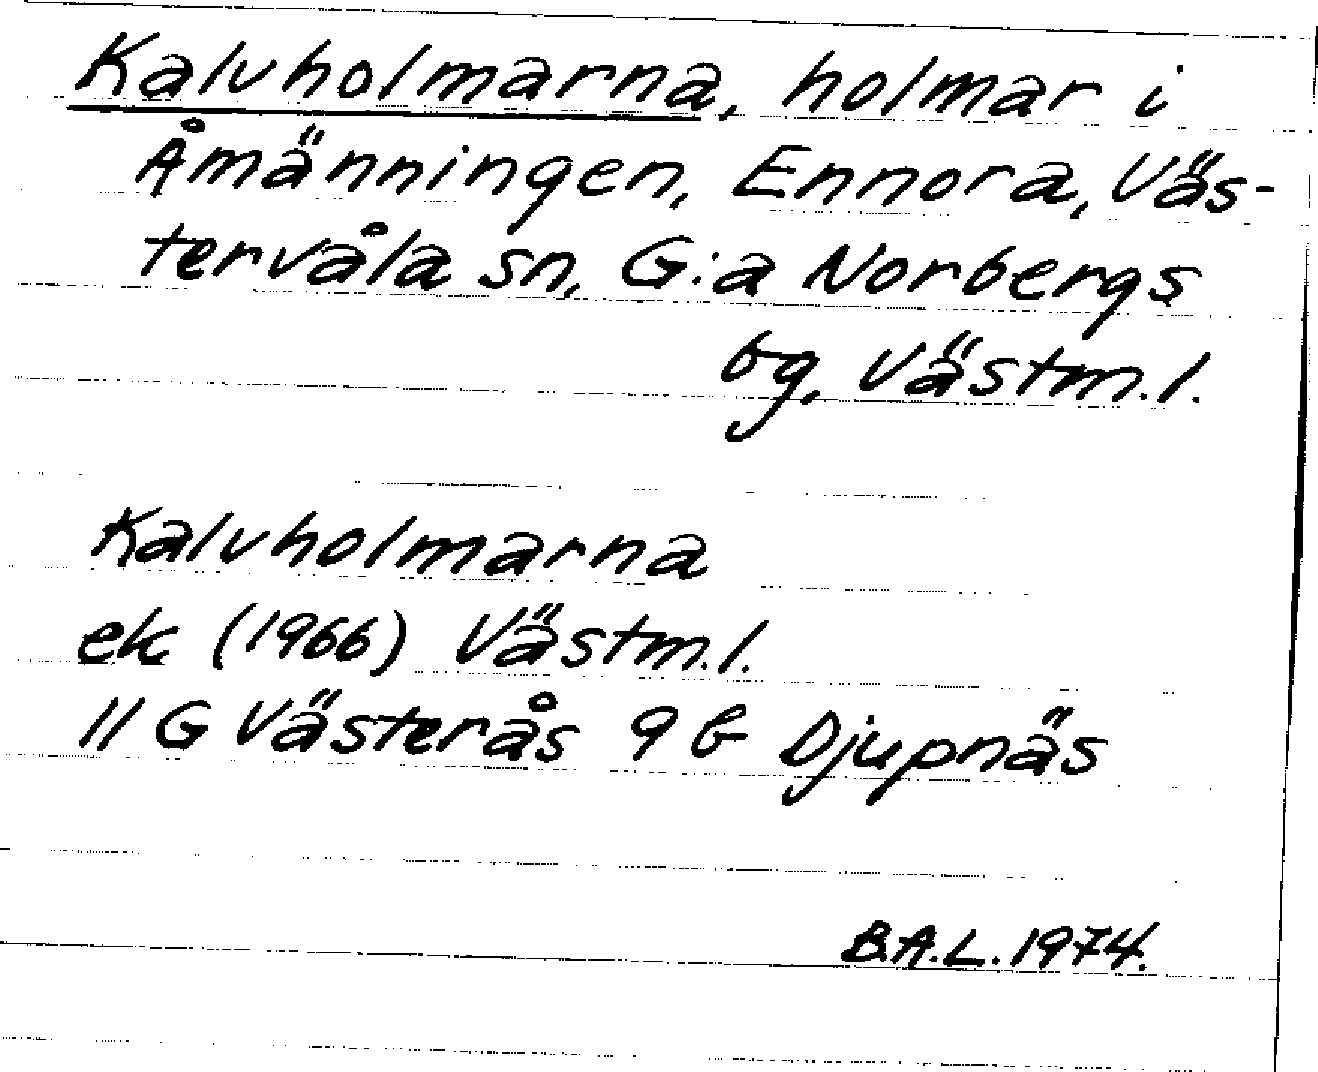 Kalvholmarna, holmar i
Åmänningen, Ennora, Väs-
tervåla sn, G:a Norbergs
bg, Västm.l.
Kalvholmarna
ek (1966) Västm.l.
11 G Västerås 9 b Djupnäs
B.A.L. 1974.